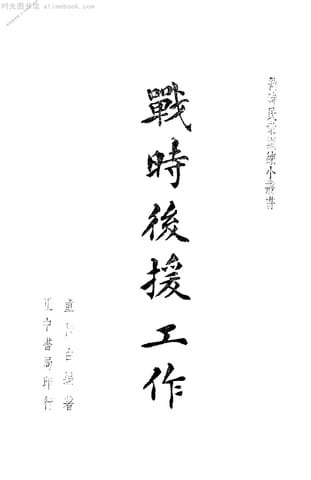 时光图书馆 atimebook.com
戰時民眾訓練小叢書
戰時後援工作
童行白編著
正中書局印行